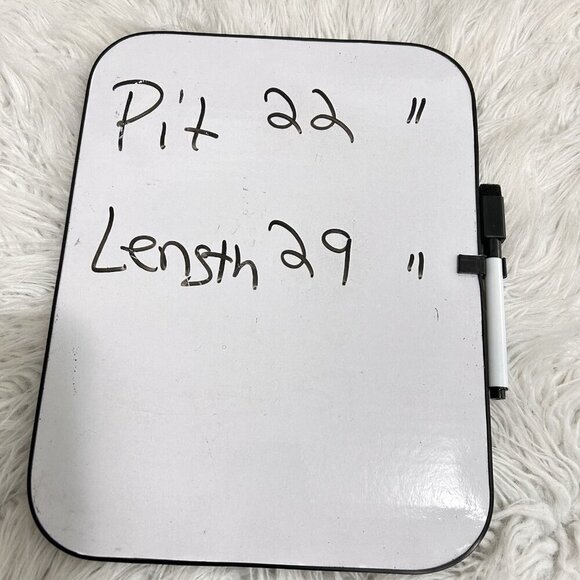 Pit 22 "
Length 29 "